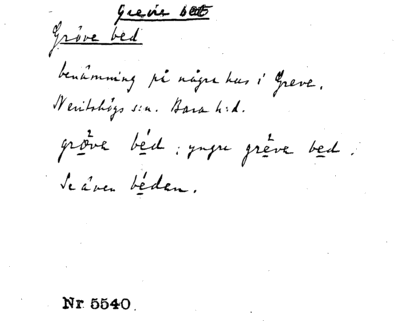 Grevie bed
Gröve bed
benämning på några hus i Greve.
Nevitshögs s:n. Bara h:d.
grövа béd ; yngre grèva bed.
Se även bédan.
Nr 5540